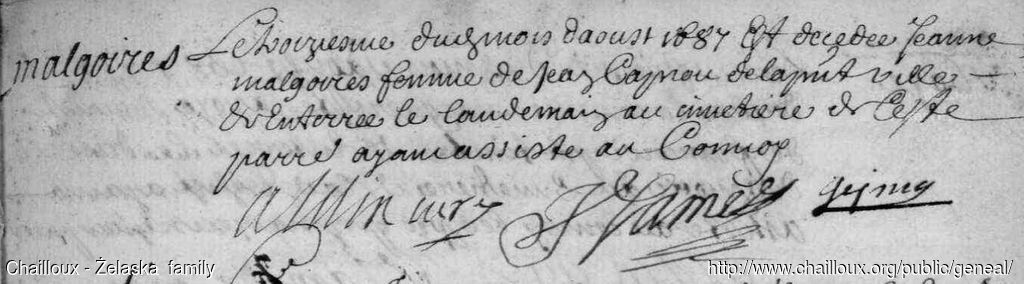 malgoires
Le troiziesme du mois daoust 1687 Est decedée Jeanne
malgoires femme de Jean Capnou de la pnt ville
& Enterree le landemain au cimetiere de Ceste
parre ayant assiste au Convoy
curé
Chailloux - Żelaska family
http://www.chailloux.org/public/geneal/